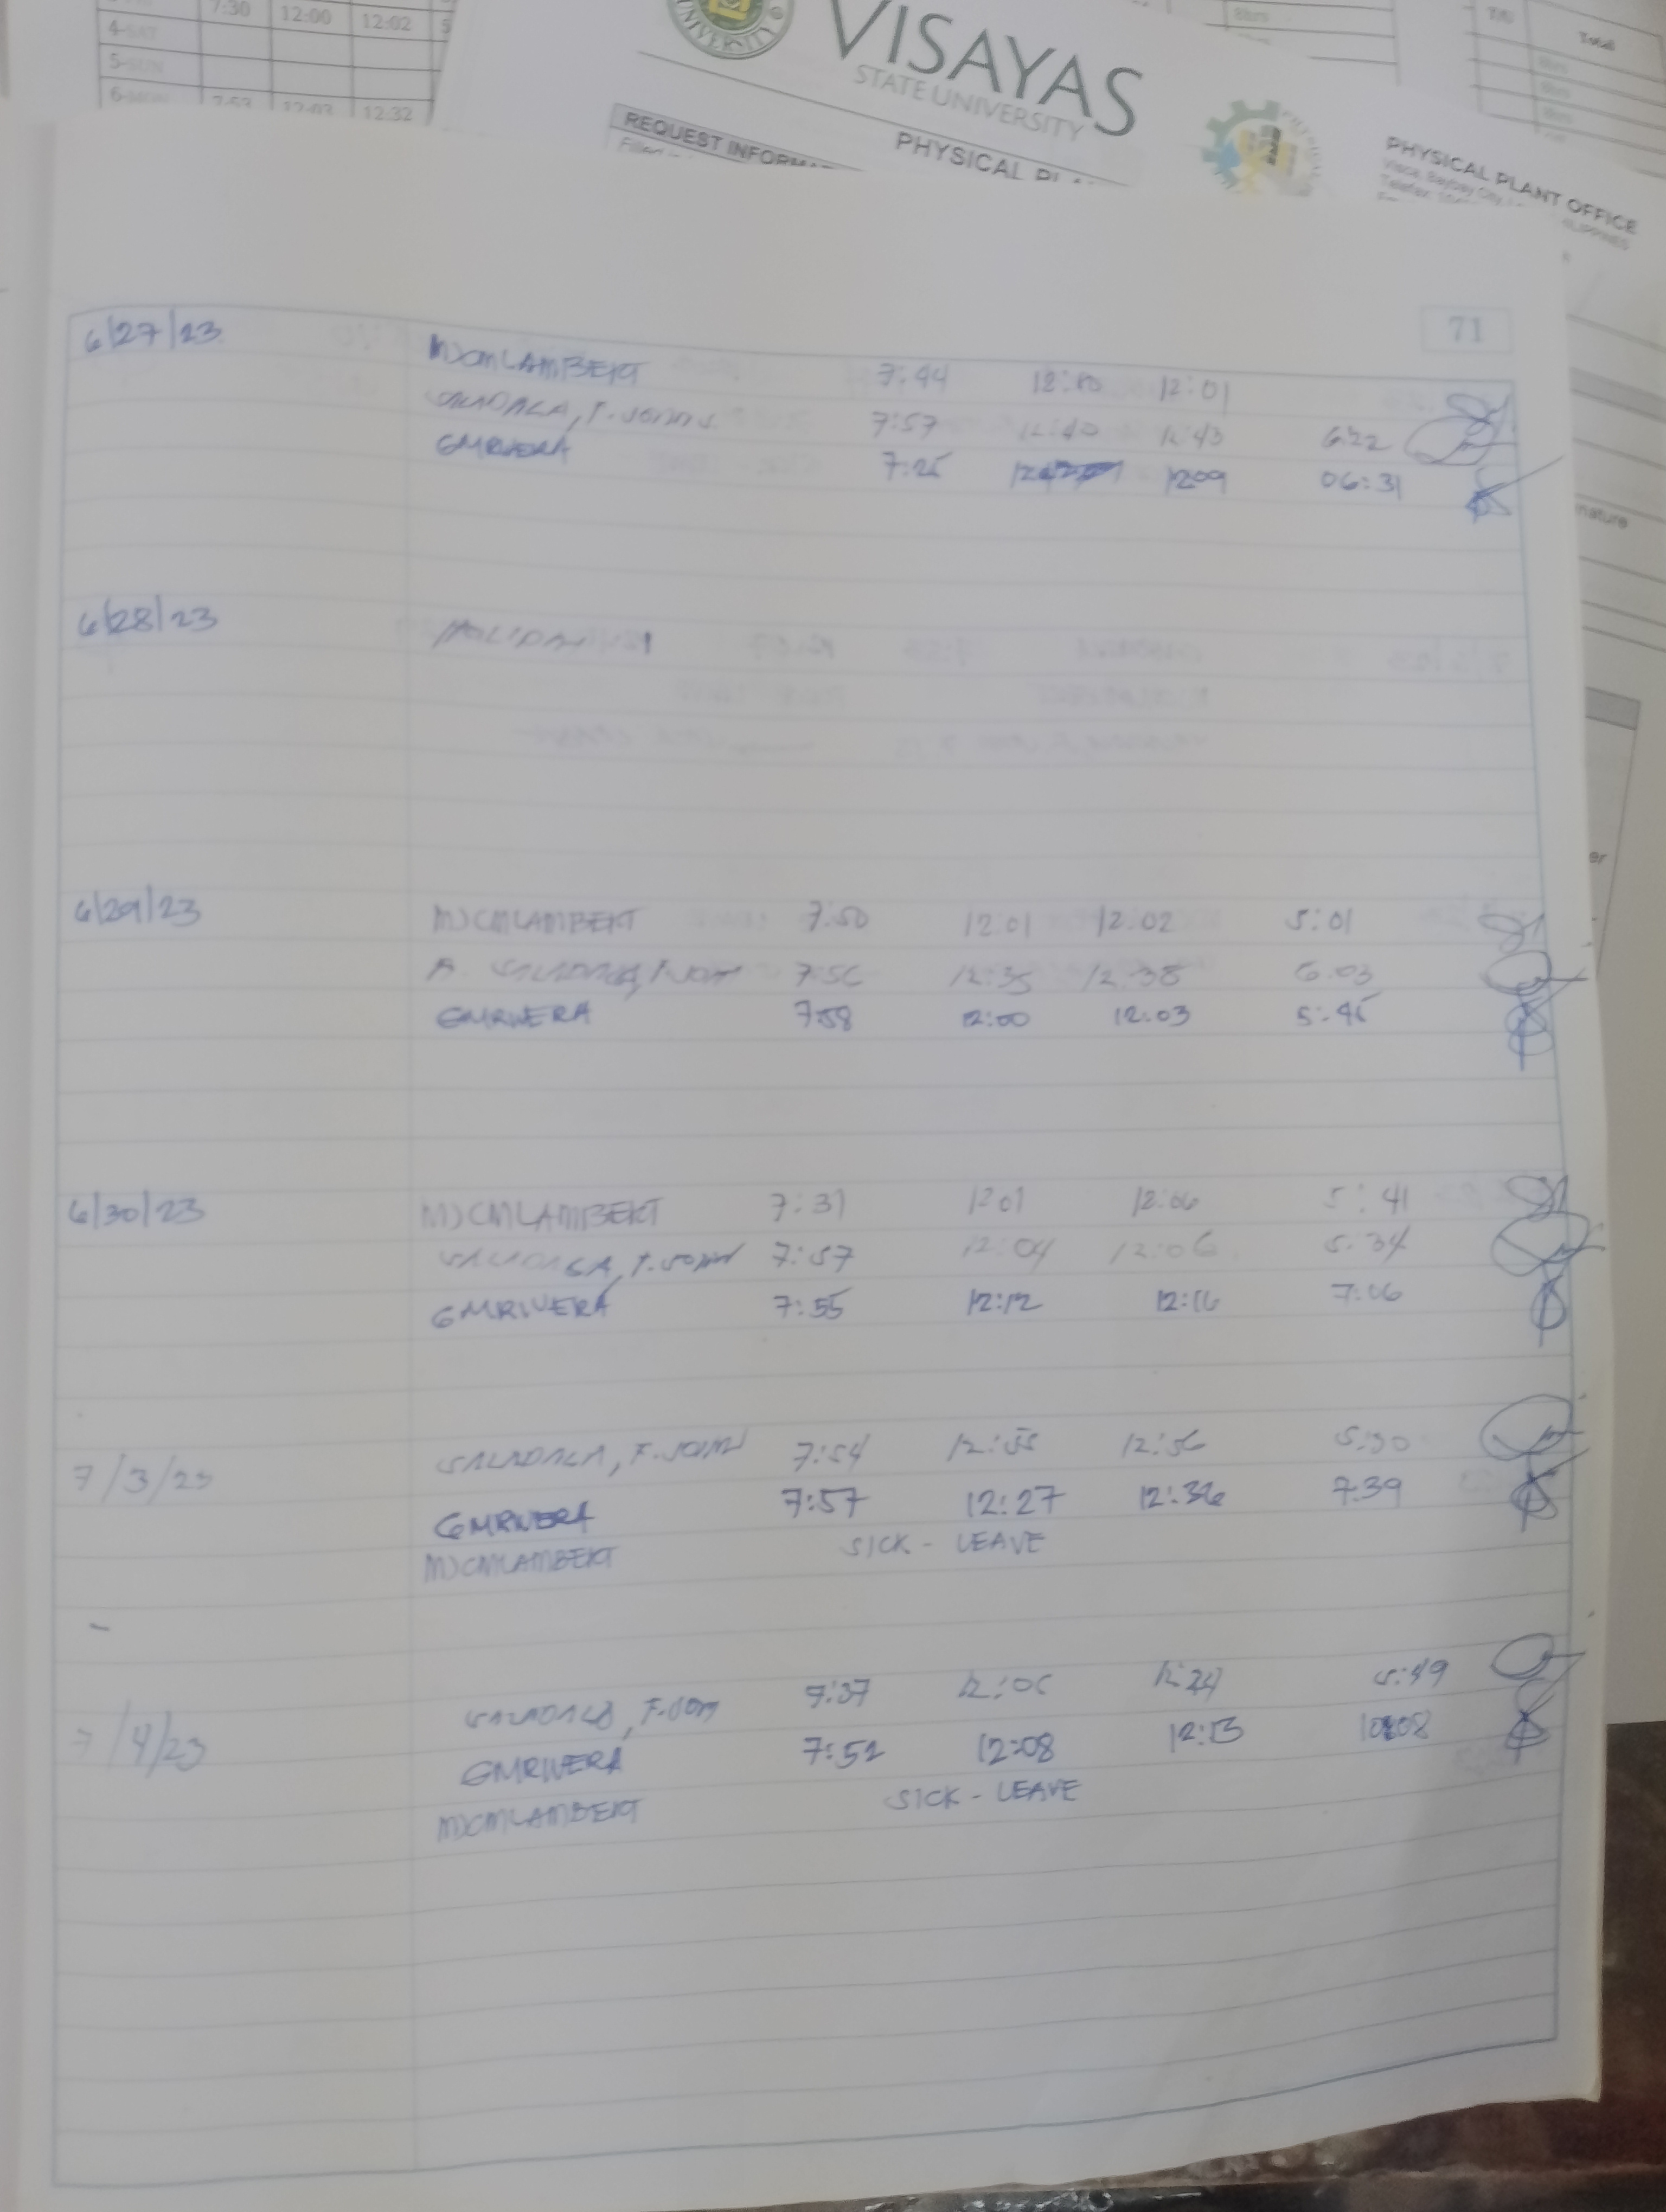 7:30 12:00 12:02 5
4-SAT
5-SUN
6-MON 7:53 12:03 12:32
8hrs
Total
UNIVERSITY
VISAYAS
STATE UNIVERSITY
REQUEST INFORMA
PHYSICAL PLA
PHYSICAL PLANT OFFICE
Visca, Baybay City,
nature
er
71
6/27/23 MJCMLAMBERT 7:44 12:00 12:01
7:57 12:40 12:43 6:22
GMRIVERA 7:25 1209 06:31
6/28/23 HOLIDAY
6/29/23 MJCMLAMBERT 7:50 12:01 12:02 5:01
7:56 12:35 12:38 6:03
GMRIVERA 758 12:00 12:03 5:45
6/30/23 MJCMLAMBERT 7:31 1201 12:06 5:41
7:57 12:04 12:06 5:34
GMRIVERA 7:55 12:12 12:16 7:06
7/3/23 SALADAGA, F. JOHN 7:54 12:55 12:56 5:30
GMRIVERA 7:57 12:27 12:36 7:39
MJCMLAMBERT SICK - LEAVE
7/4/23 7:37 12:05 12:24 5:49
GMRIVERA 7:52 12:08 12:13
MJCMLAMBERT SICK - LEAVE